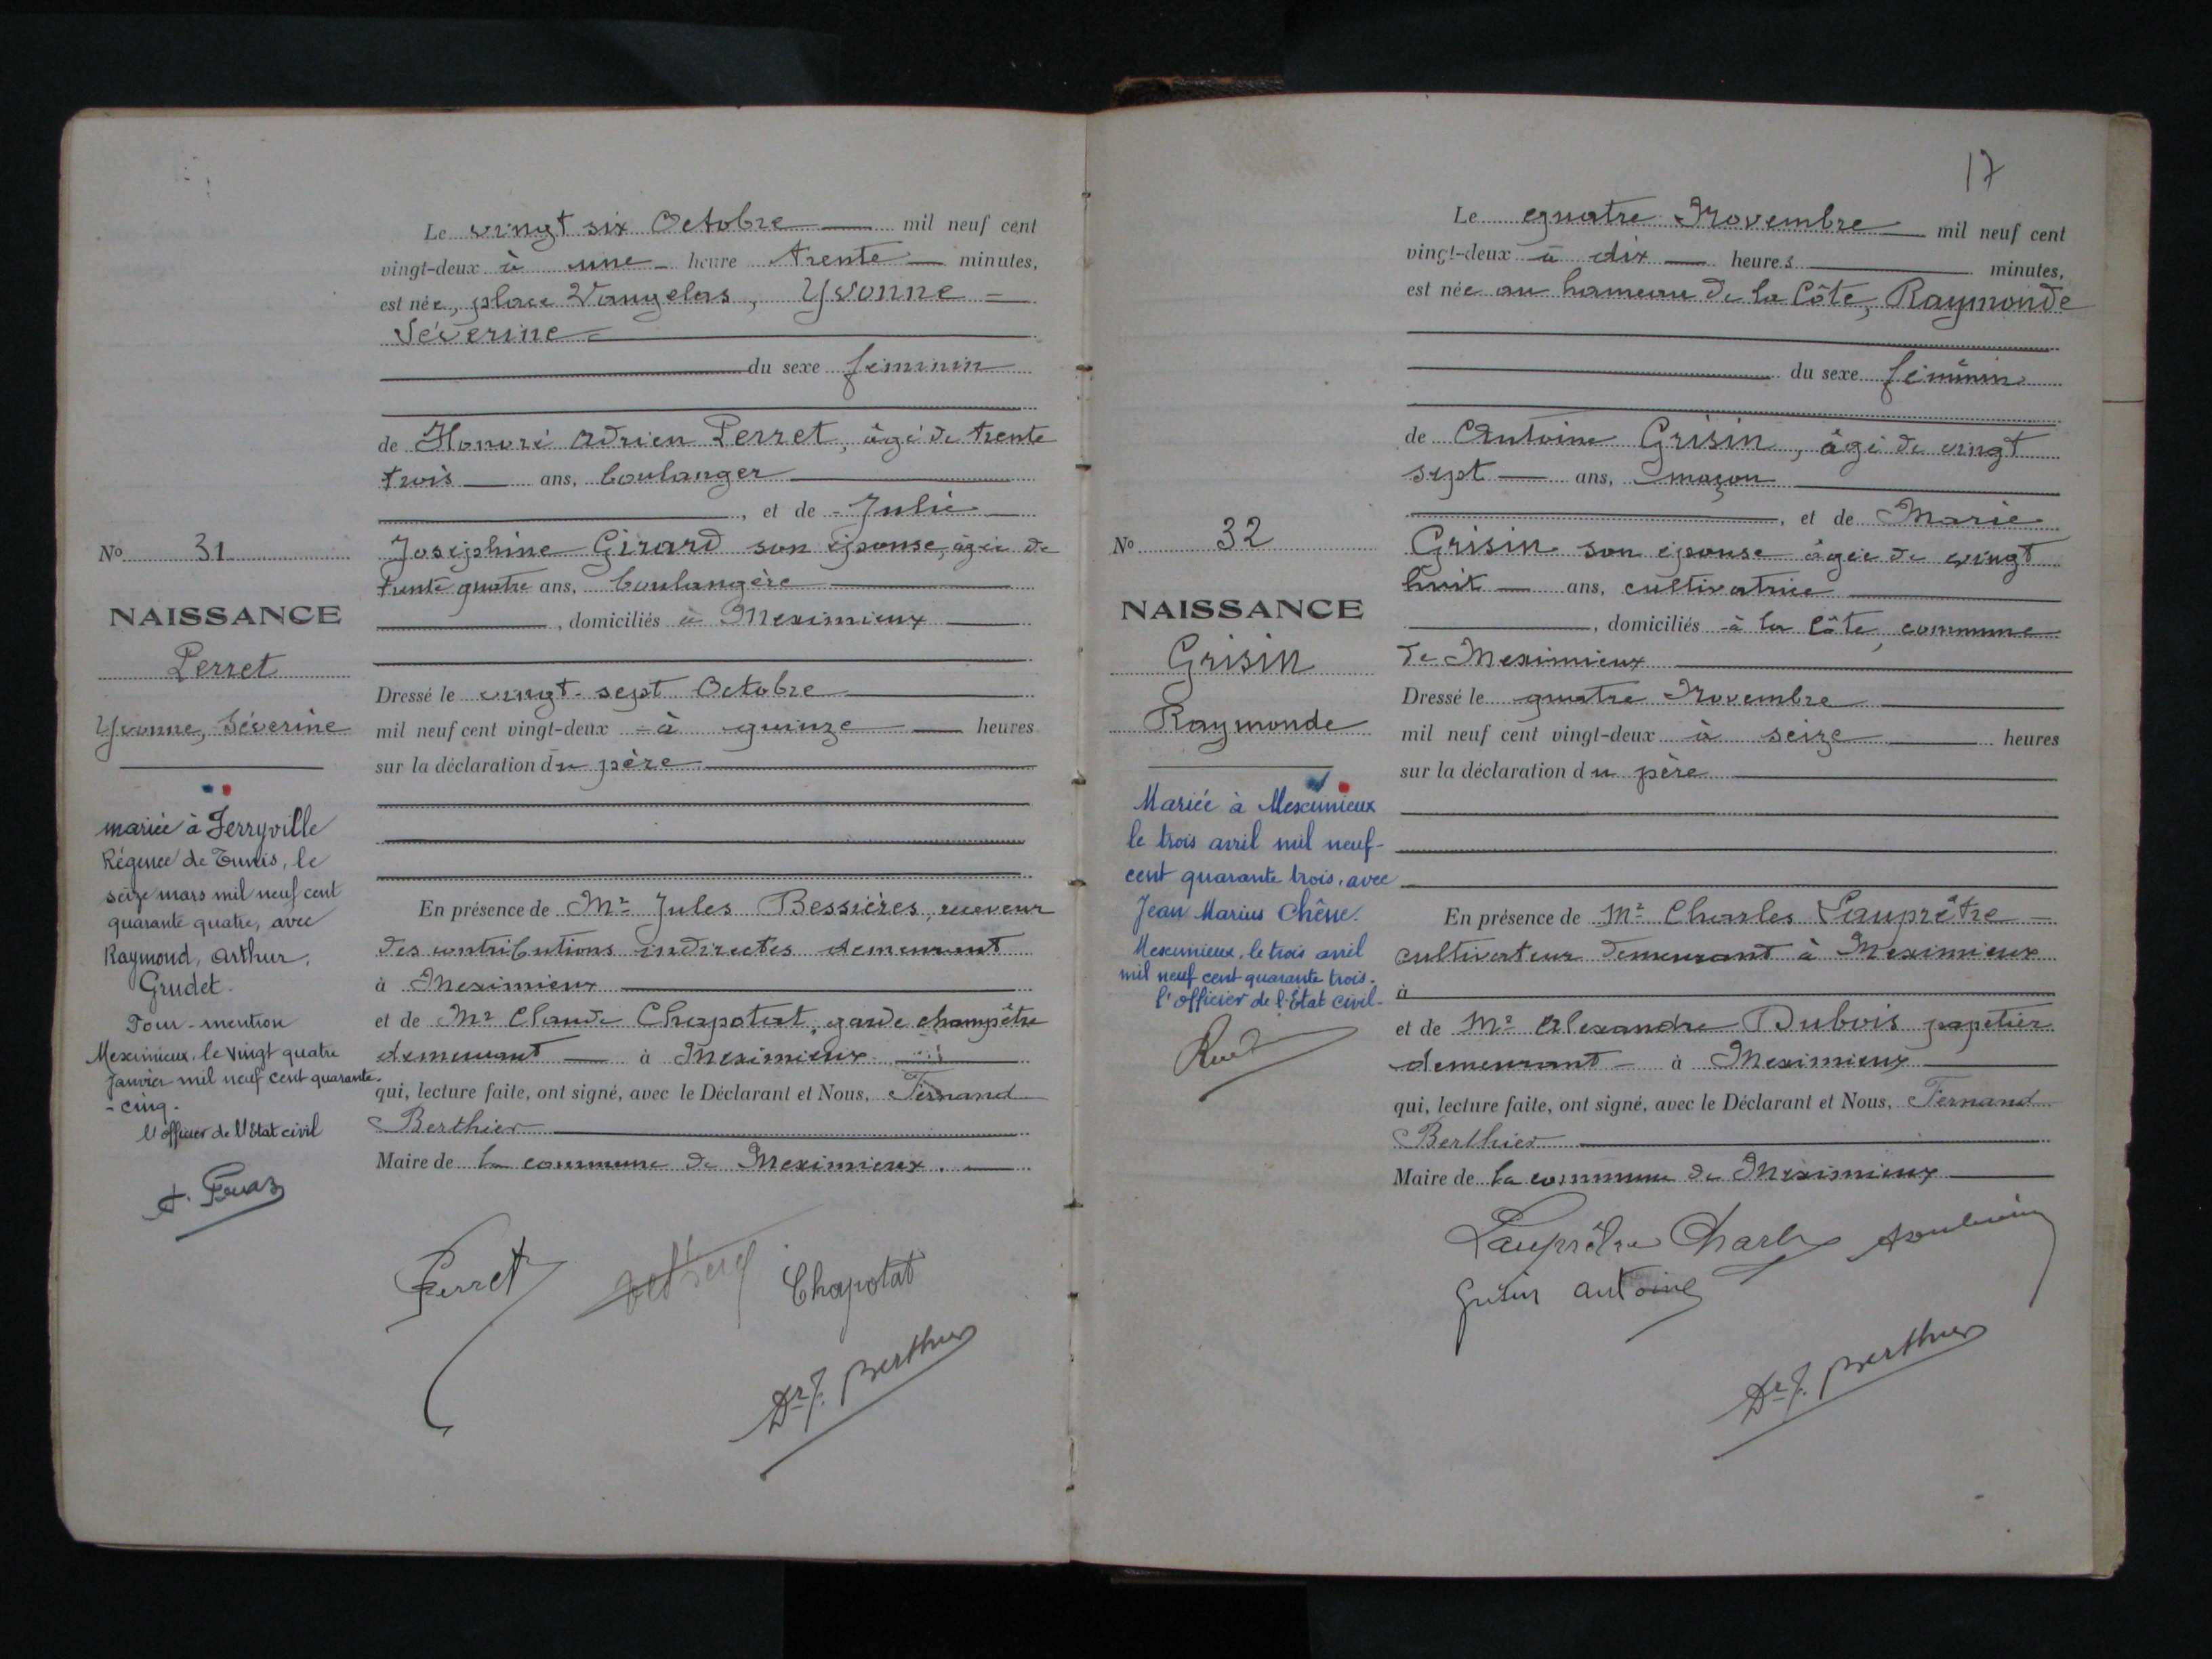 Le vingt six Octobre mil neuf cent
vingt-deux à une heure trente minutes,
est née, place Vaugelas, Yvonne =
Séverine =
du sexe féminin
de Honoré Adrien Perret, âgé de trente
trois ans, boulanger
, et de Julie
Joséphine Girard son épouse, âgée de
trente quatre ans, boulangère
, domiciliés à Meximieux
Dressé le vingt-sept Octobre
mil neuf cent vingt-deux à quinze heures
sur la déclaration du père
En présence de Mr Jules Bessières, receveur
des contributions indirectes demeurant
à Meximieux
et de Mr Claude Chapotat, garde champêtre
demeurant à Meximieux
qui, lecture faite, ont signé, avec le Déclarant et Nous, Fernand
Berthier
Maire de la commune de Meximieux.
No 31
NAISSANCE
Perret
Yvonne, Séverine
mariée à Ferryville
Régence de Tunis, le
seize mars mil neuf cent
quarante quatre, avec
Raymond, Arthur,
Grudet.
Pour mention
Meximieux, le vingt quatre
Janvier mil neuf cent quarante
- cinq.
L'officier de l'Etat civil
Perret
Chapotat
Dr F. Berthier
17
Le quatre Novembre mil neuf cent
vingt-deux à dix heures minutes,
est née au hameau de la Côte, Raymonde
du sexe féminin
de Antoine Grisin, âgé de vingt
sept ans, maçon
, et de Marie
Grisin son épouse âgée de vingt
huit ans, cultivatrice
, domiciliés à la Côte, commune
de Meximieux
Dressé le quatre Novembre
mil neuf cent vingt-deux à seize heures
sur la déclaration du père
En présence de Mr Charles Lauprêtre =
cultivateur demeurant à Meximieux
à
et de Mr Alexandre Dubois papetier
demeurant à Meximieux
qui, lecture faite, ont signé, avec le Déclarant et Nous, Fernand
Berthier
Maire de la commune de Meximieux
No 32
NAISSANCE
Grisin
Raymonde
Mariée à Meximieux
le trois avril mil neuf-
cent quarante trois, avec
Jean Marius Chêne.
Meximieux, le trois avril
mil neuf cent quarante trois.
l'officier de l'Etat civil.
Lauprêtre Charles
Grisin Antoine
Dr F. Berthier